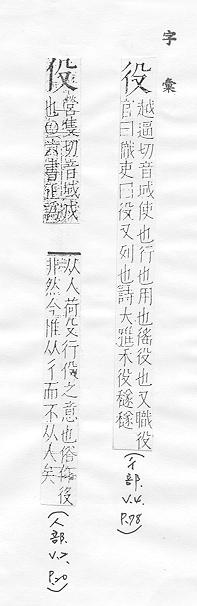 字彙
役
越逼切音域使也行也用也徭役也又職役
官曰職吏曰役又列也詩大雅禾役穟穟
(彳部. V.4. P.98)
伇
營隻切音域戍
也○六書
从人荷殳行役之意也俗作役
非然今惟从彳而不从人矣
(人部. V.2. P.20)